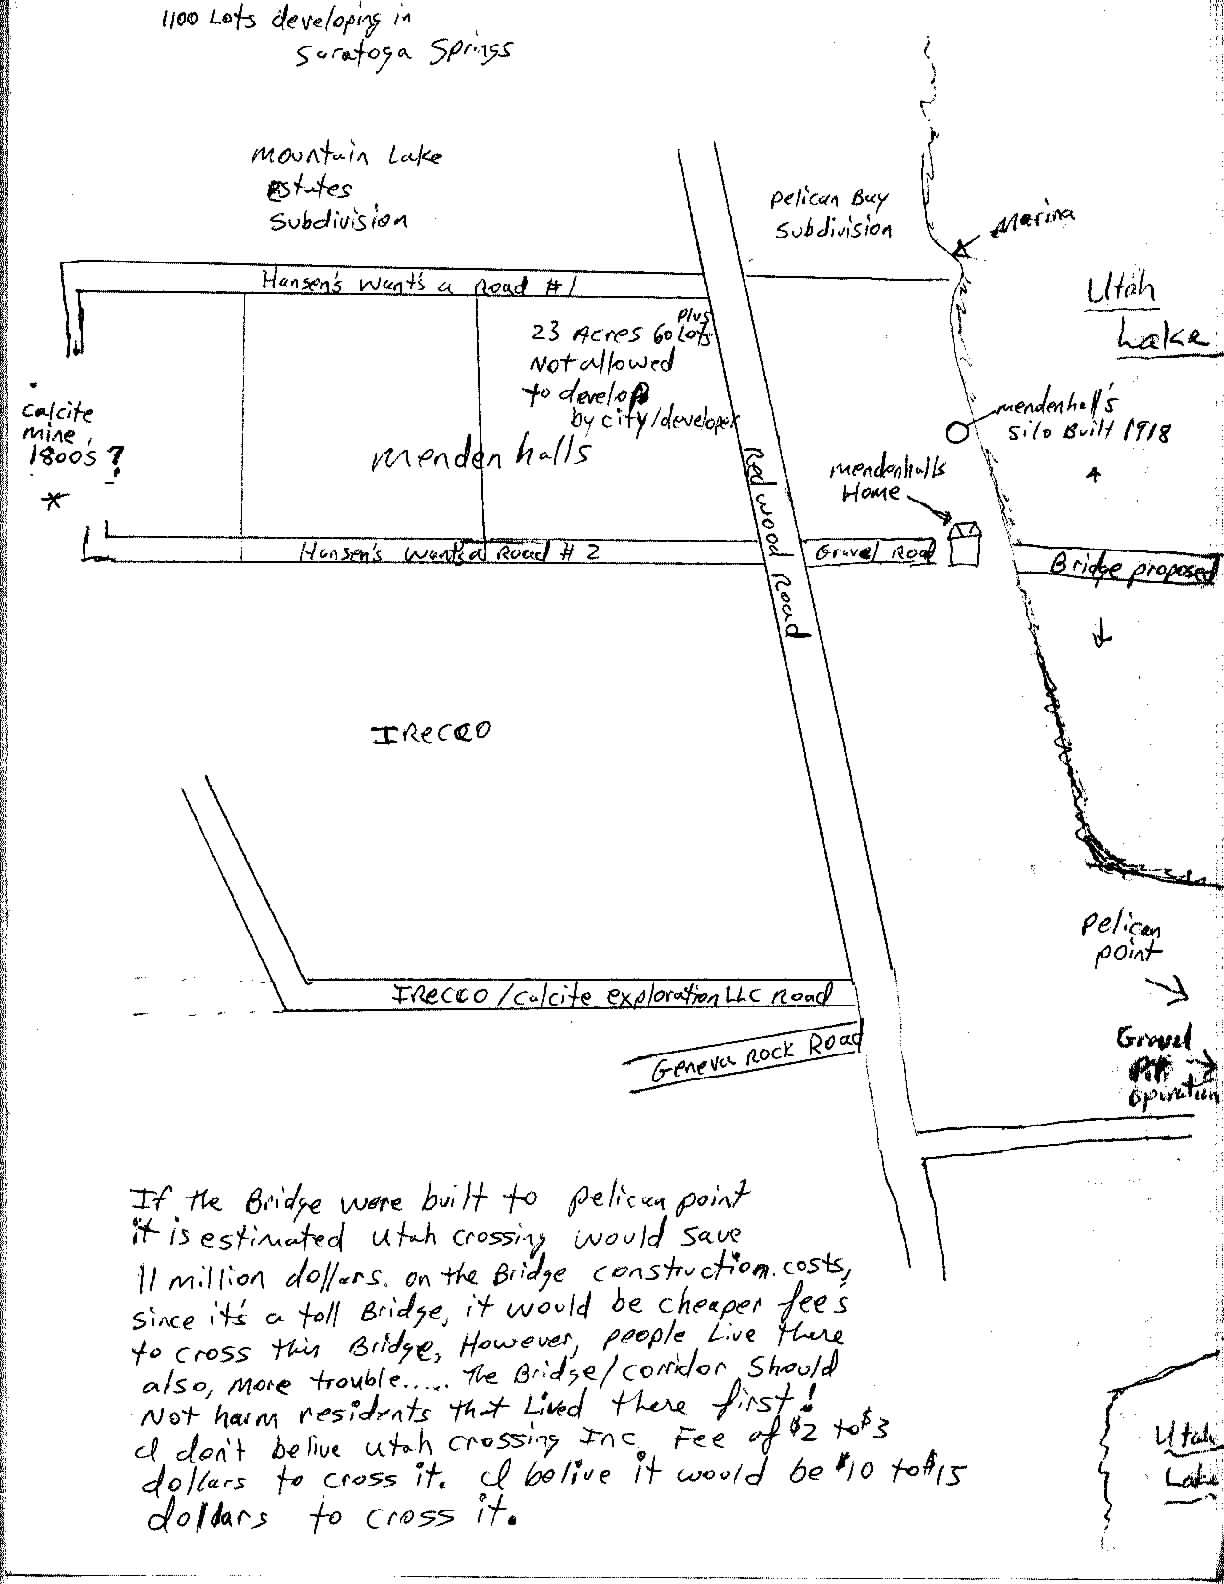 1100 Lots developing in
Saratoga Springs
Mountain Lake
Estates
Subdivision
Pelican Bay
Subdivision
Marina
Utah
Lake
Hansen's want's a Road #1
plus
23 Acres 60 Lots
Not allowed
to develop
by city/developer
Calcite
mine,
1800's ?
Mendenhalls
Redwood Road
mendenhall's
silo Built 1918
mendenhalls
Home
Hansen's wants a Road #2
Gravel Road
Bridge proposed
IRECCO
Pelican
point
IRECCO / Calcite exploration LLC Road
Geneva Rock Road
Gravel
Pit
operation
If the Bridge were built to pelican point
it is estimated Utah crossing would save
11 million dollars. on the Bridge construction costs,
since it's a toll Bridge, it would be cheaper fees
to cross this Bridge, However, people Live there
also, more trouble..... The Bridge/corridor should
Not harm residents that Lived there first!
I don't belive Utah Crossing Inc Fee of $2 to $3
dollars to cross it. I belive it would be $10 to $15
dollars to cross it.
Utah
Lake